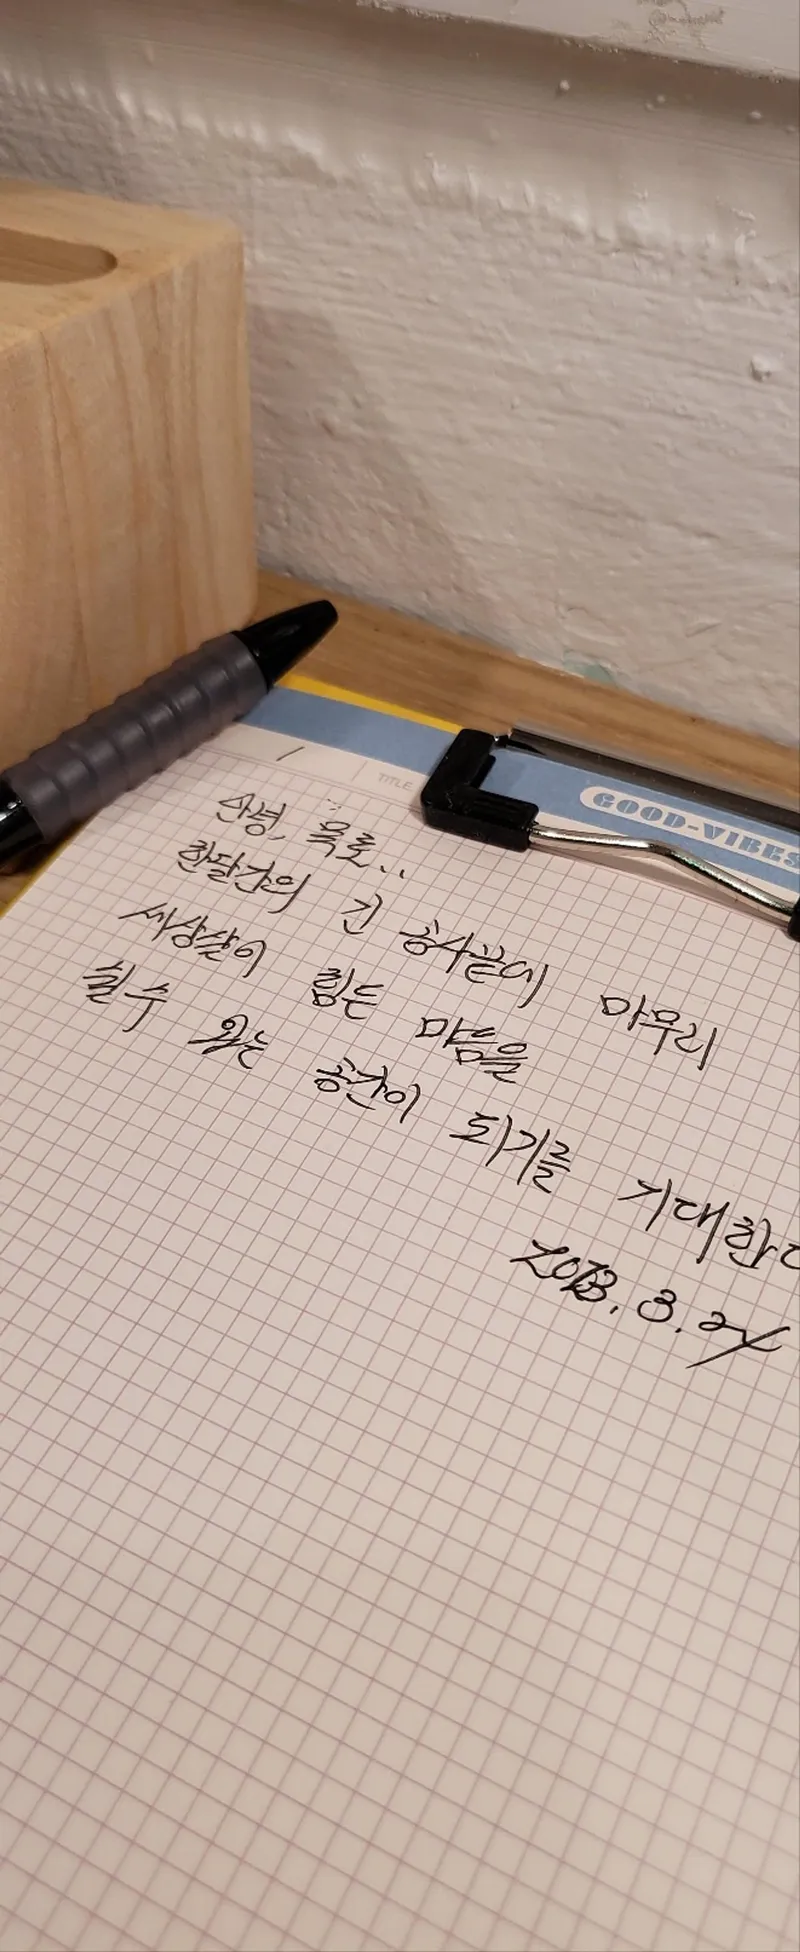 TITLE
GOOD-VIBES
안녕, 목로..
한달간의 긴 공사끝에 마무리
세상살이 힘든 마음을
쉴수 있는 공간이 되기를 기대한다
2023. 3. 24